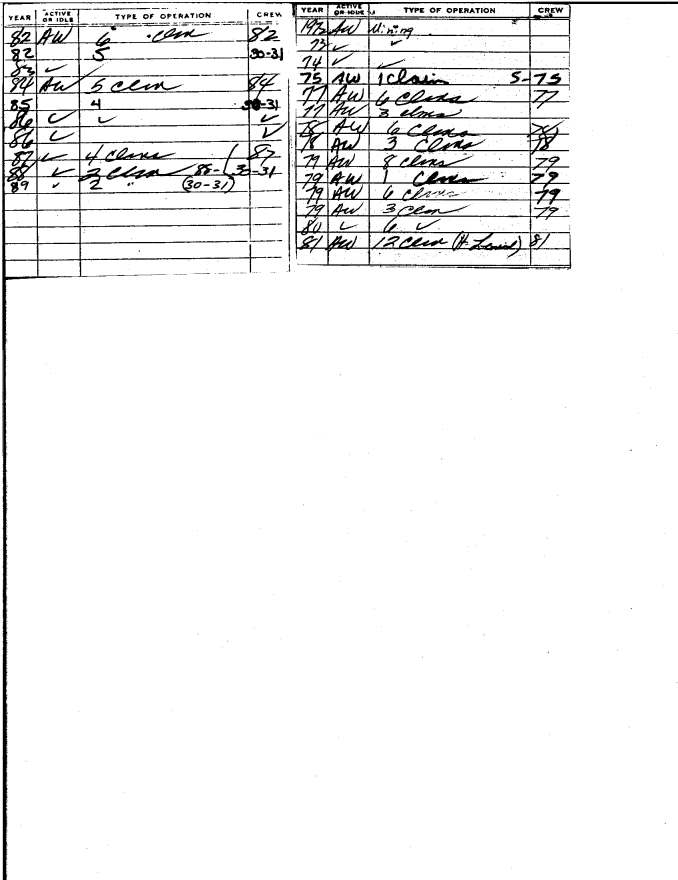 YEAR ACTIVE OR IDLE TYPE OF OPERATION CREW
82 AW 6 clm 82
82 5 30-31
83 ✓
84 AW 5 clm 84
85 4 30-31
86 ✓ ✓ ✓
86 ✓ ✓
87 ✓ 4 clms 87
88 ✓ 2 clm 88-(30-31
89 " 2 " (30-31)
YEAR ACTIVE OR IDLE TYPE OF OPERATION CREW
1972 AW Mining
73 ✓ ✓
74 ✓ ✓
75 AW 1 Claim 5-75
77 AW 6 Clms 77
77 AW 3 clms
78 AW 6 Clms 78
78 AW 3 Clms 78
79 AW 8 clms 79
79 AW 1 Clms 79
79 AW 6 Clms 79
79 AW 3 Clm 79
80 ✓ 6 ✓
81 AW 12 Clm 81